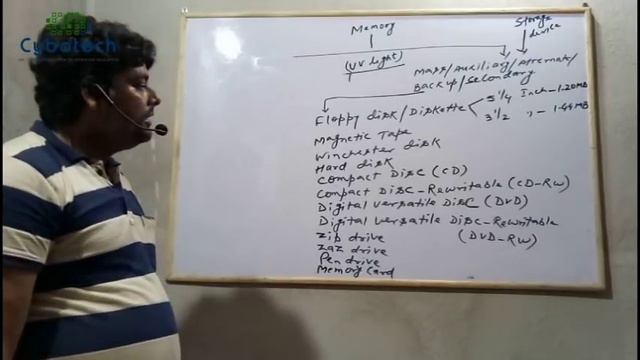 Cybotech
Memory
Storage
device
(UV light)
Mass/Auxiliary/Alternate/
Backup/Secondary
Floppy disk/Diskette
5 1/4 Inch - 1.20MB
3 1/2 " - 1.44MB
Magnetic Tape
Winchester disk
Hard disk
Compact Disc (CD)
Compact Disc-Rewritable (CD-RW)
Digital Versatile Disc (DVD)
Digital Versatile Disc-Rewritable
(DVD-RW)
Zip drive
Zaz drive
Pen drive
Memory Card